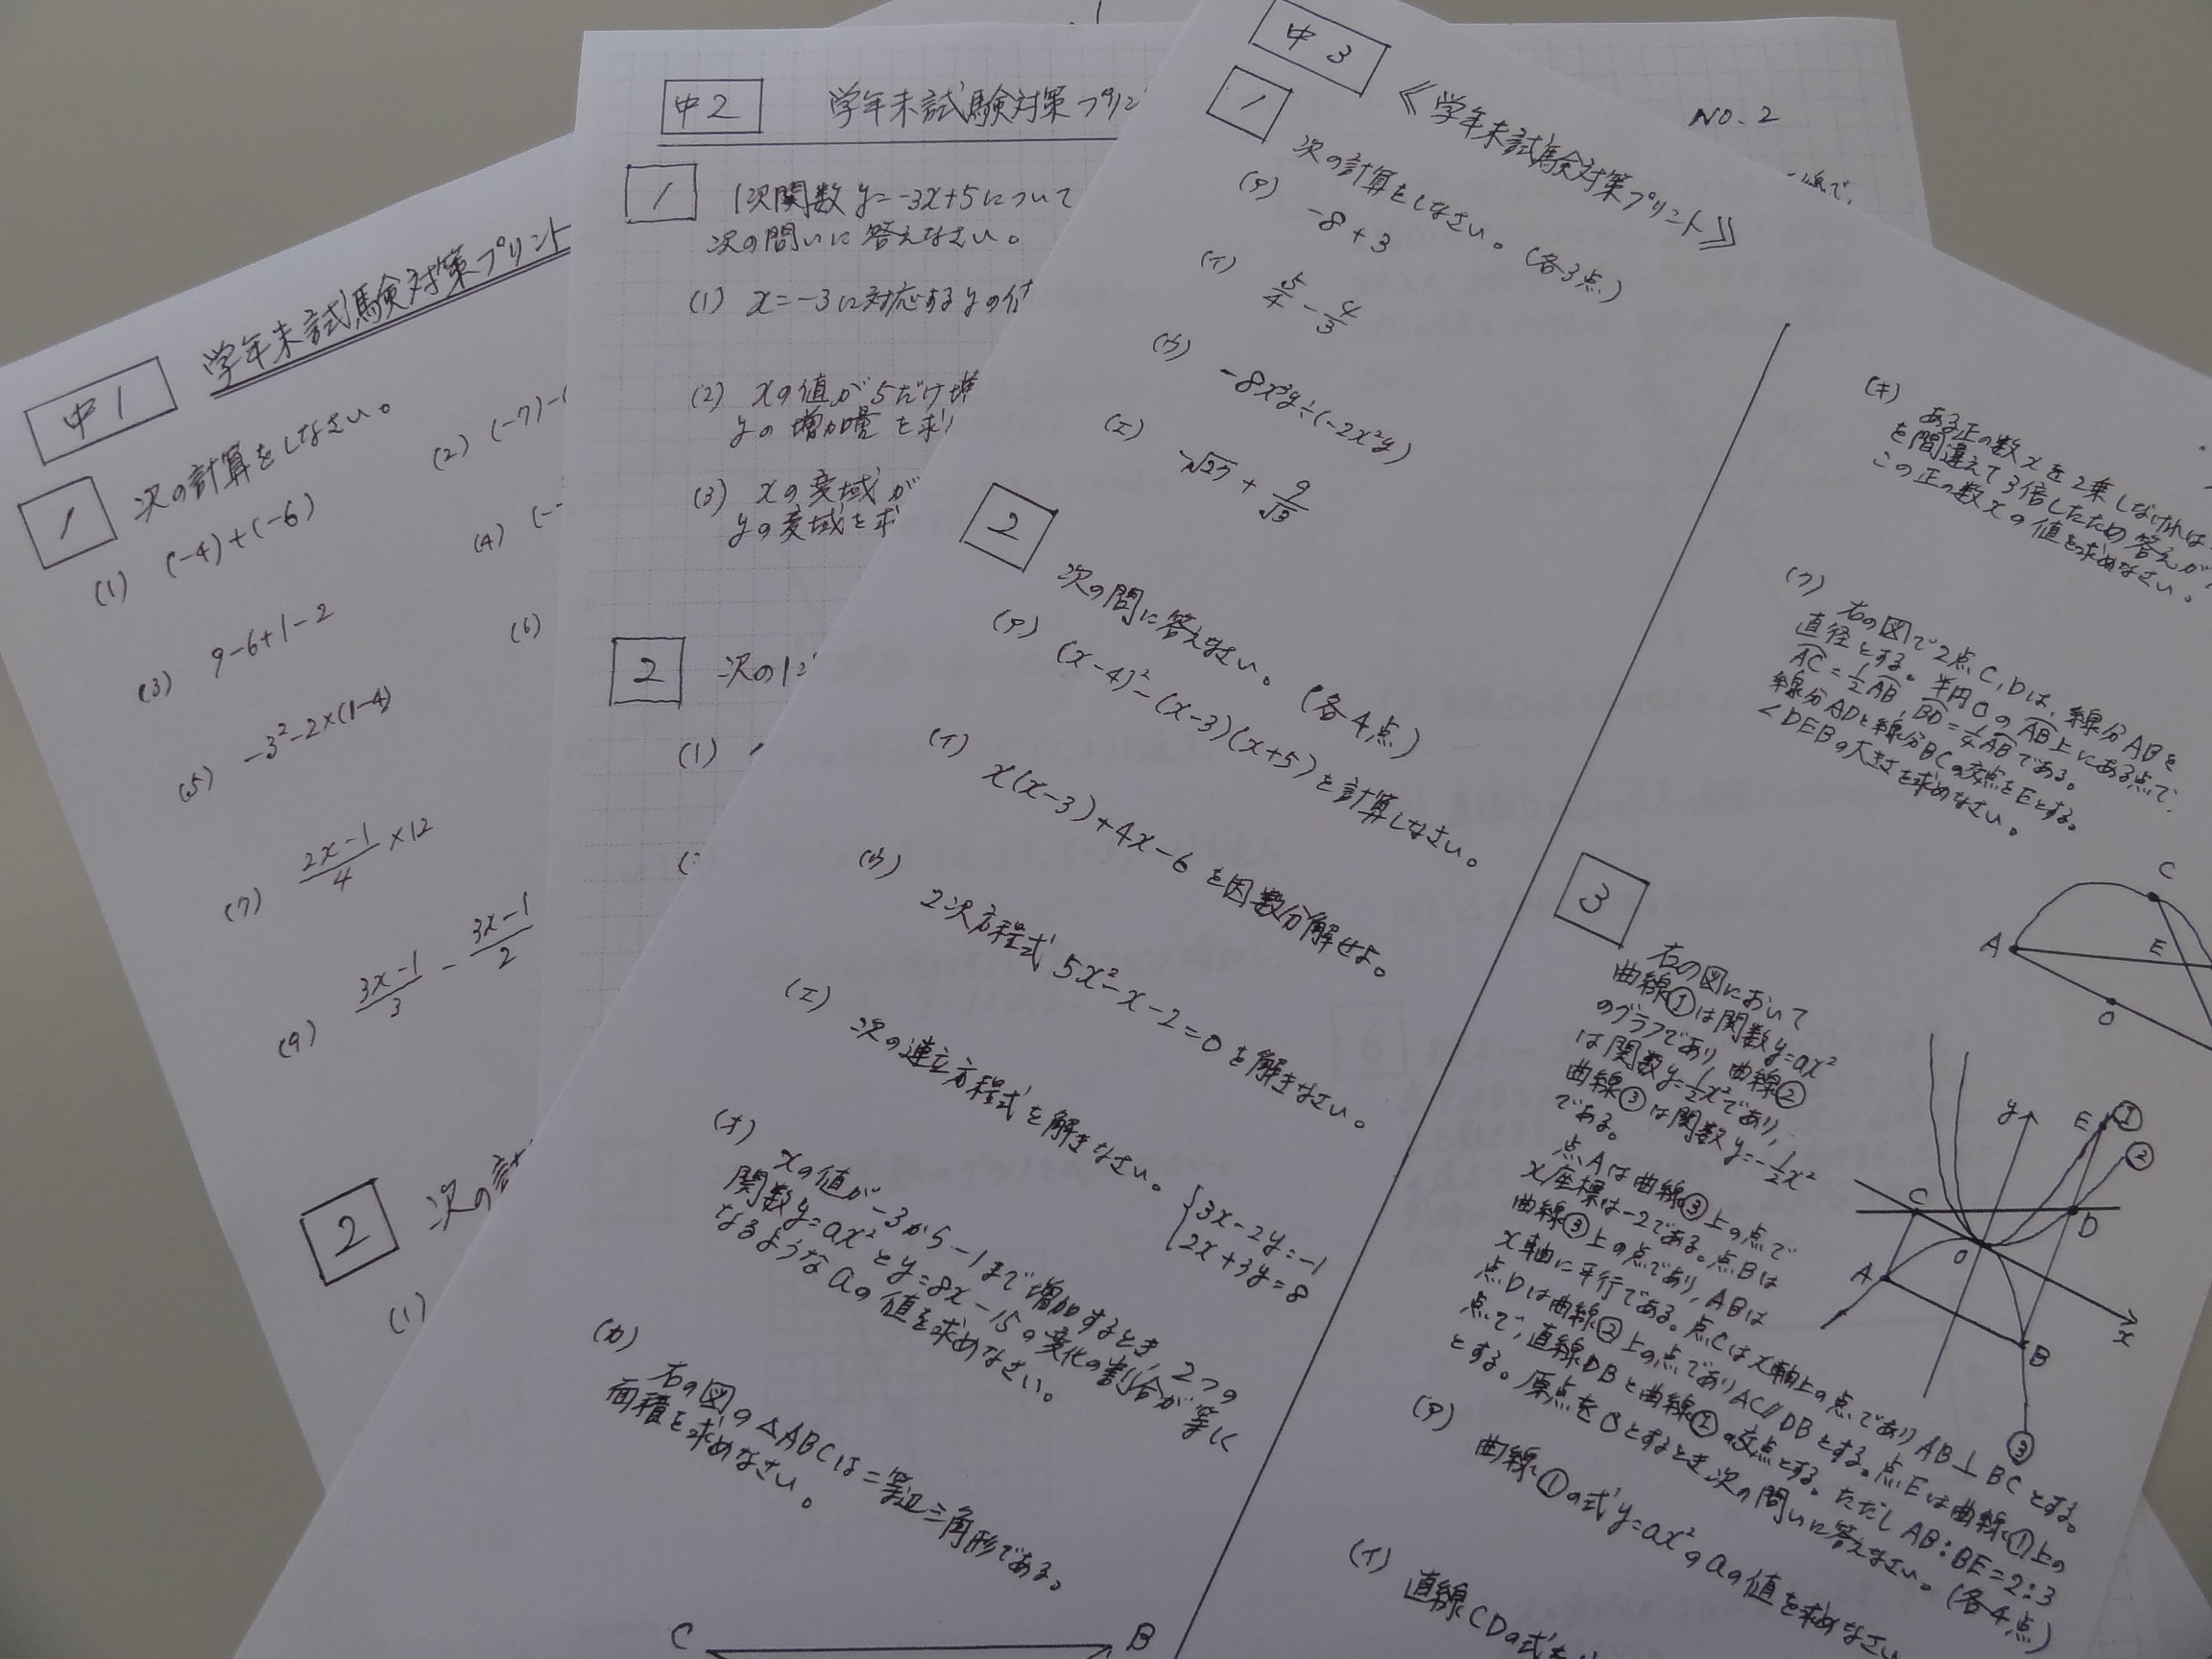 中1
学年末試験対策プリント
1
次の計算をしなさい。
(1) (-4)+(-6)
(2) (-7)-(
(3) 9-6+1-2
(4) (-
(5) -3²-2×(1-4)
(6)
(7) \frac{2x-1}{4}×12
(9) \frac{3x-1}{3} - \frac{3x-1}{2}
2
次の計
(1)
中2
学年末試験対策プリン
1
1次関数 y=-3x+5について
次の問いに答えなさい。
(1) x=-3に対応するyの値
(2) xの値が5だけ増
yの増加量を求
(3) xの変域が
yの変域を求
2
次の1次
(1)
中3
《学年末試験対策プリント》
1
次の計算をしなさい。(各3点)
(ア) -8+3
(イ) \frac{5}{4} - \frac{4}{3}
(ウ) -8x³y÷(-2x²y)
(エ) -√27 + \frac{9}{√3}
2
次の問に答えなさい。(各4点)
(ア) (x-4)²-(x-3)(x+5)を計算しなさい。
(イ) x(x-3)+4x-6を因数分解せよ。
(ウ) 2次方程式 5x²-x-2=0を解きなさい。
(エ) 次の連立方程式を解きなさい。
3x-2y=-1
2x+3y=8
(オ) xの値が-3から-1まで増加するとき、2つの
関数y=ax²とy=8x-15の変化の割合が等しく
なるようなaの値を求めなさい。
(カ) 右の図の△ABCは二等辺三角形である。
面積を求めなさい。
C
B
(キ) ある正の数xを2乗しなければ
を間違えて3倍したため答えが
この正の数xの値を求めなさい。
(ク) 右の図で2点C,Dは、線分ABを
直径とする。半円Oの\overset{⌢}{AB}上にある点で、
\overset{⌢}{AC}=\frac{1}{2}\overset{⌢}{AB}, \overset{⌢}{BD}=\frac{1}{4}\overset{⌢}{AB}である。
線分ADと線分BCの交点をEとする。
∠DEBの大きさを求めなさい。
C
A
E
O
3
右の図において
曲線①は関数y=ax²
のグラフであり、曲線②
は関数y=\frac{1}{2}x²であり、
曲線③は関数y=-\frac{1}{2}x²
である。
点Aは曲線③上の点で
x座標は-2である。点Bは
曲線③上の点であり、ABは
x軸に平行である。点Cはx軸上の点でありAB⊥BCとする。
点Dは曲線②上の点でありAC∥DBとする。点Eは曲線①上の
点で、直線DBと曲線①の交点とする。ただしAB:BE=2:3
とする。原点をOとするとき次の問いに答えなさい。(各4点)
y
E
①
②
C
D
O
A
B
x
③
(ア) 曲線①の式y=ax²のaの値を求めなさい
(イ) 直線CDの式を
NO.2
線で、